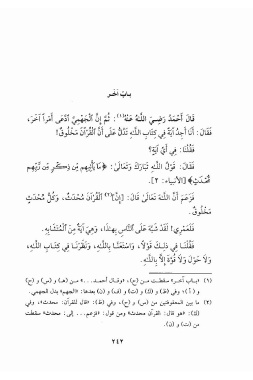 باب آخر
قال أحمد رَضِيَ اللَّهُ عَنْهُ(١): ثُمَّ إِنَّ الْجَهْمِيَّ ادَّعَى أَمْرًا آخَرَ،
فَقَالَ: أَنَا أَجِدُ آيَةً فِي كِتَابِ اللَّهِ تَدُلُّ عَلَى أَنَّ الْقُرْآنَ مَخْلُوقٌ!
فَقُلْنَا: فِي أَيِّ آيَةٍ؟
فَقَالَ: قَوْلُ اللَّهِ تَبَارَكَ وَتَعَالَى: ﴿مَا يَأْتِيهِم مِّن ذِكْرٍ مِّن رَّبِّهِم
مُّحْدَثٍ﴾ [الأنبياء: ٢].
فَزَعَمَ أَنَّ اللَّهَ تَعَالَى قَالَ: [إِنَّ](٢) الْقُرْآنَ مُحْدَثٌ، وَكُلُّ مُحْدَثٍ
مَخْلُوقٌ.
فَلَعَمْرِي! لَقَدْ شَبَّهَ عَلَى النَّاسِ بِهَذَا، وَهِيَ آيَةٌ مِنَ الْمُتَشَابِهِ.
فَقُلْنَا فِي ذَلِكَ قَوْلًا، وَاسْتَعَنَّا بِاللَّهِ، وَنَظَرْنَا فِي كِتَابِ اللَّهِ،
وَلَا حَوْلَ وَلَا قُوَّةَ إِلَّا بِاللَّهِ.
(١) «باب آخر» سقطت من (ح)، «وقال أحمد...» من (هـ) و (س) و (ح)
و (أ)، وفي (ظ) و (ك) و (ت) و (ف) و (ن) بعدها: «الجهم» بدل الجهمي.
(٢) ما بين المعقوفتين من (س) و (ح)، وفي (ظ): «قال للقرآن: محدث»، وفي
(ك): «هو قال: القرآن محدث» ومن قول: «فزعم... إلى: محدث» سقطت
من (ت) و (ن).
٢٤٢